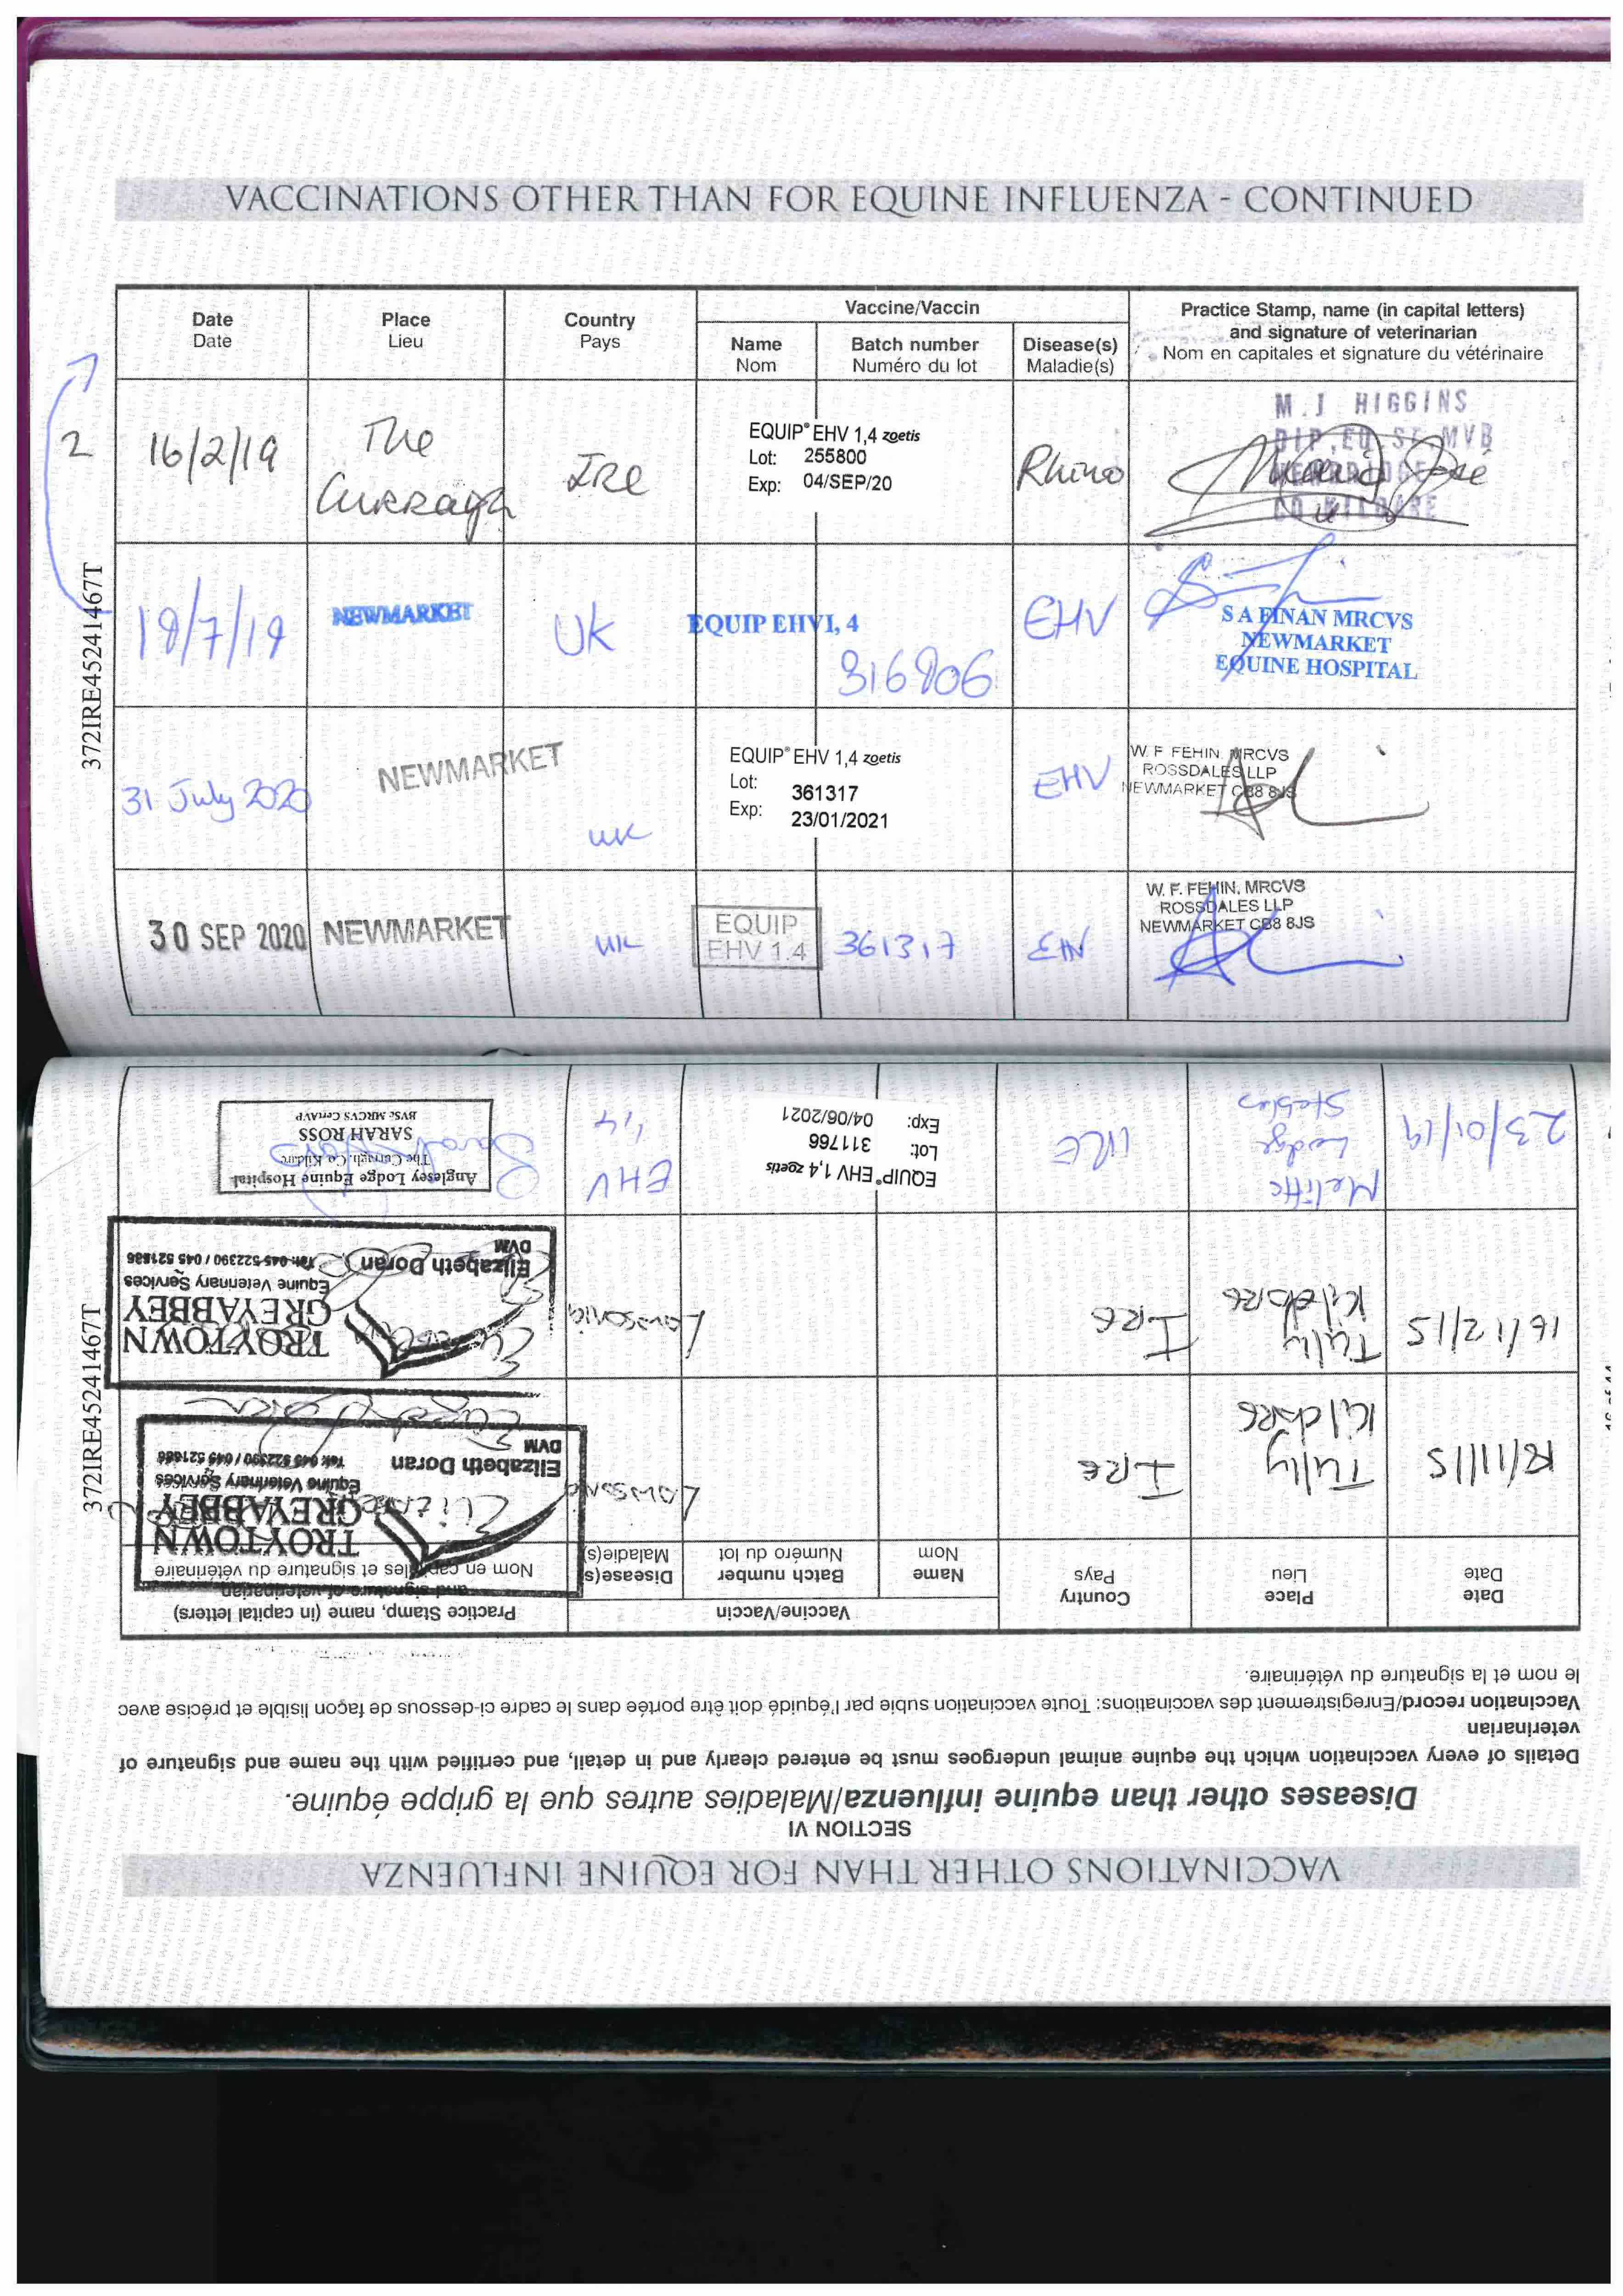 VACCINATIONS OTHER THAN FOR EQUINE INFLUENZA - CONTINUED
Date
Date
Place
Lieu
Country
Pays
Vaccine/Vaccin
Name
Nom
Batch number
Numéro du lot
Disease(s)
Maladie(s)
Practice Stamp, name (in capital letters)
and signature of veterinarian
Nom en capitales et signature du vétérinaire
2
16/2/19
The
Curragh
IRE
EQUIP® EHV 1,4 zoetis
Lot: 255800
Exp: 04/SEP/20
Rhino
M.J HIGGINS
DIP,EQ.SC MVB
NEWBRIDGE
CO KILDARE
372IRE45241467T
18/7/19
NEWMARKET
UK
EQUIP EHV1, 4
316806
EHV
S A FINAN MRCVS
NEWMARKET
EQUINE HOSPITAL
31 July 2020
NEWMARKET
UK
EQUIP® EHV 1,4 zoetis
Lot: 361317
Exp: 23/01/2021
EHV
W. F FEHIN, MRCVS
ROSSDALES LLP
NEWMARKET CB8 8JS
30 SEP 2020
NEWMARKET
UK
EQUIP
EHV 1.4
361317
EHV
W. F. FEHIN, MRCVS
ROSSDALES LLP
NEWMARKET CB8 8JS
VACCINATIONS OTHER THAN FOR EQUINE INFLUENZA
SECTION VI
Diseases other than equine influenza/Maladies autres que la grippe équine.
Details of every vaccination which the equine animal undergoes must be entered clearly and in detail, and certified with the name and signature of
veterinarian
Vaccination record/Enregistrement des vaccinations: Toute vaccination subie par l'équidé doit être portée dans le cadre ci-dessous de façon lisible et précise avec
le nom et la signature du vétérinaire.
Date
Date
Place
Lieu
Country
Pays
Vaccine/Vaccin
Name
Nom
Batch number
Numéro du lot
Disease(s)
Maladie(s)
Practice Stamp, name (in capital letters)
and signature of veterinarian
Nom en capitales et signature du vétérinaire
Tully
Kildare
IRE
Lawsonia
TROYTOWN
GREYABBEY
Equine Veterinary Services
Elizabeth Doran
Tel: 045 522390 / 045 521686
DVM
372IRE45241467T
16/12/15
Tully
Kildare
IRE
Lawsonia
TROYTOWN
GREYABBEY
Equine Veterinary Services
Elizabeth Doran
Tel: 045 522390 / 045 521686
DVM
23/01/19
Lodge
Stables
IRE
EQUIP® EHV 1,4 zoetis
Lot: 311766
Exp: 04/06/2021
EHV
1,4
Anglesey Lodge Equine Hospital
The Curragh, Co Kildare
SARAH ROSS
BVSc MRCVS CertAVP